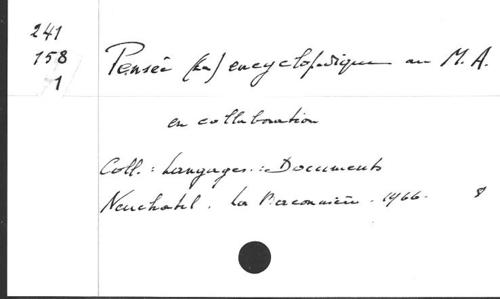 241
158
1
Pensée (La) encyclopédique au M. A.
en collaboration
Coll. : Langages : Documents
Neuchatel. La Baconnière. 1966. 8